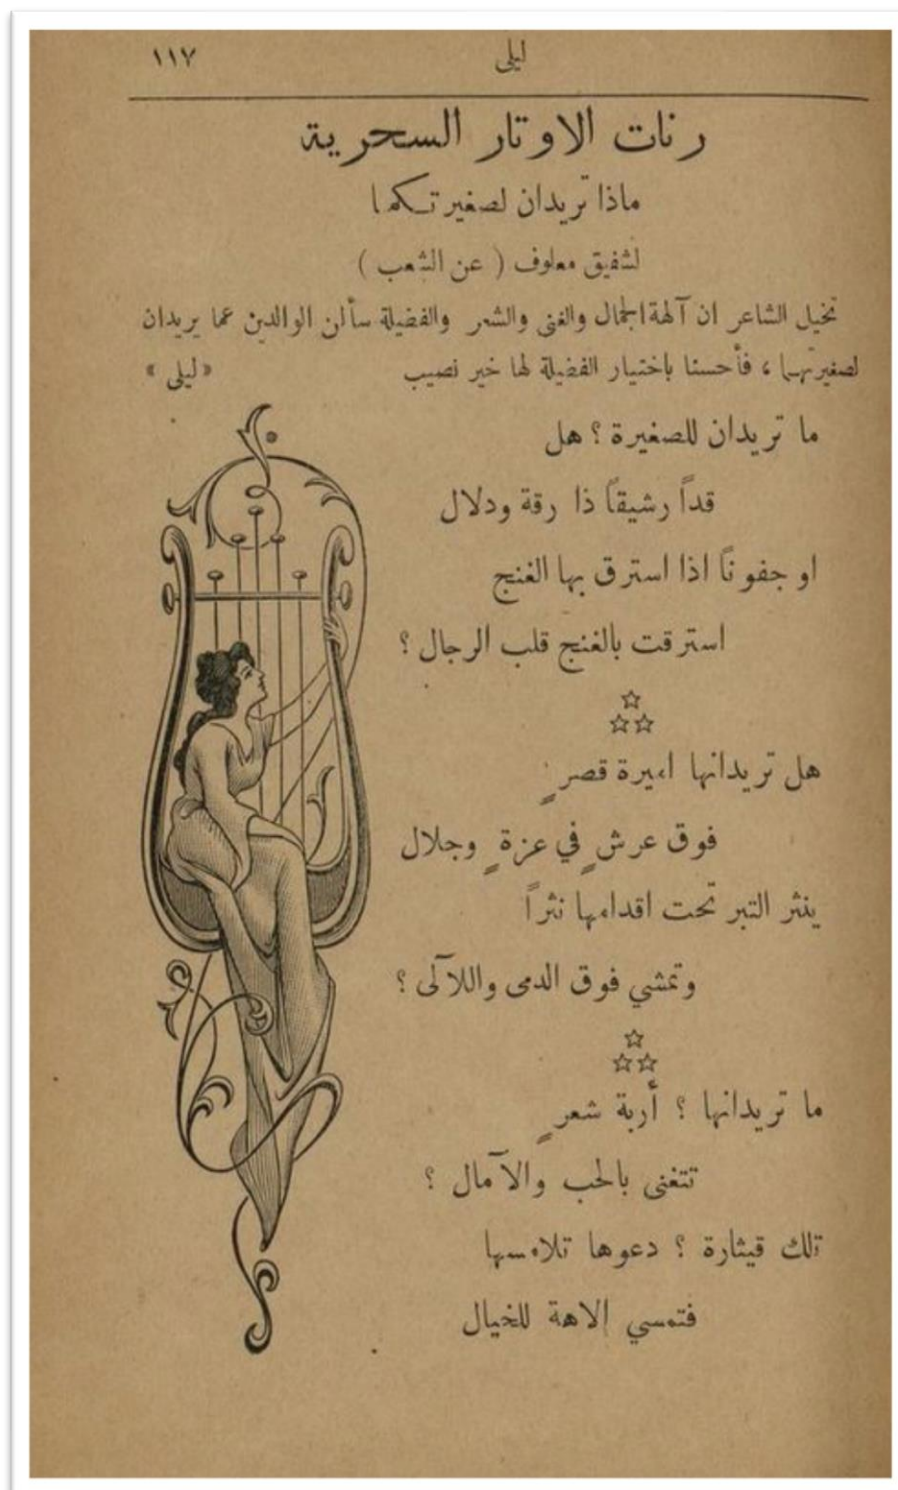 ليلى ١١٧
رنات الاوتار السحرية
ماذا تريدان لصغيرتكما
لشفيق معلوف ( عن الشعب )
تخيل الشاعر ان آلهة الجمال والغنى والشعر والفضيلة سألن الوالدين عما يريدان
لصغيرتهما ، فأحسنا باختيار الفضيلة لها خير نصيب « ليلى »
ما تريدان للصغيرة ؟ هل
قداً رشيقاً ذا رقة ودلال
او جفوناً اذا استرق بها الغنج
استرقت بالغنج قلب الرجال ؟
هل تريدانها اميرة قصرٍ
فوق عرشٍ في عزةٍ وجلال
ينثر التبر تحت اقدامها نثراً
وتمشي فوق الدمى واللآلى ؟
ما تريدانها ؟ أربة شعرٍ
تتغنى بالحب والآمال ؟
تلك قيثارة ؟ دعوها تلامسها
فتمسي إلاهة للخيال